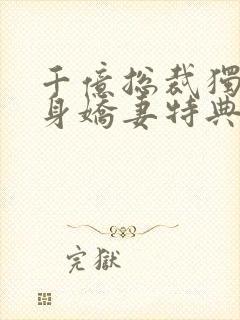 千億総裁獨
身嬌妻特典
完獄